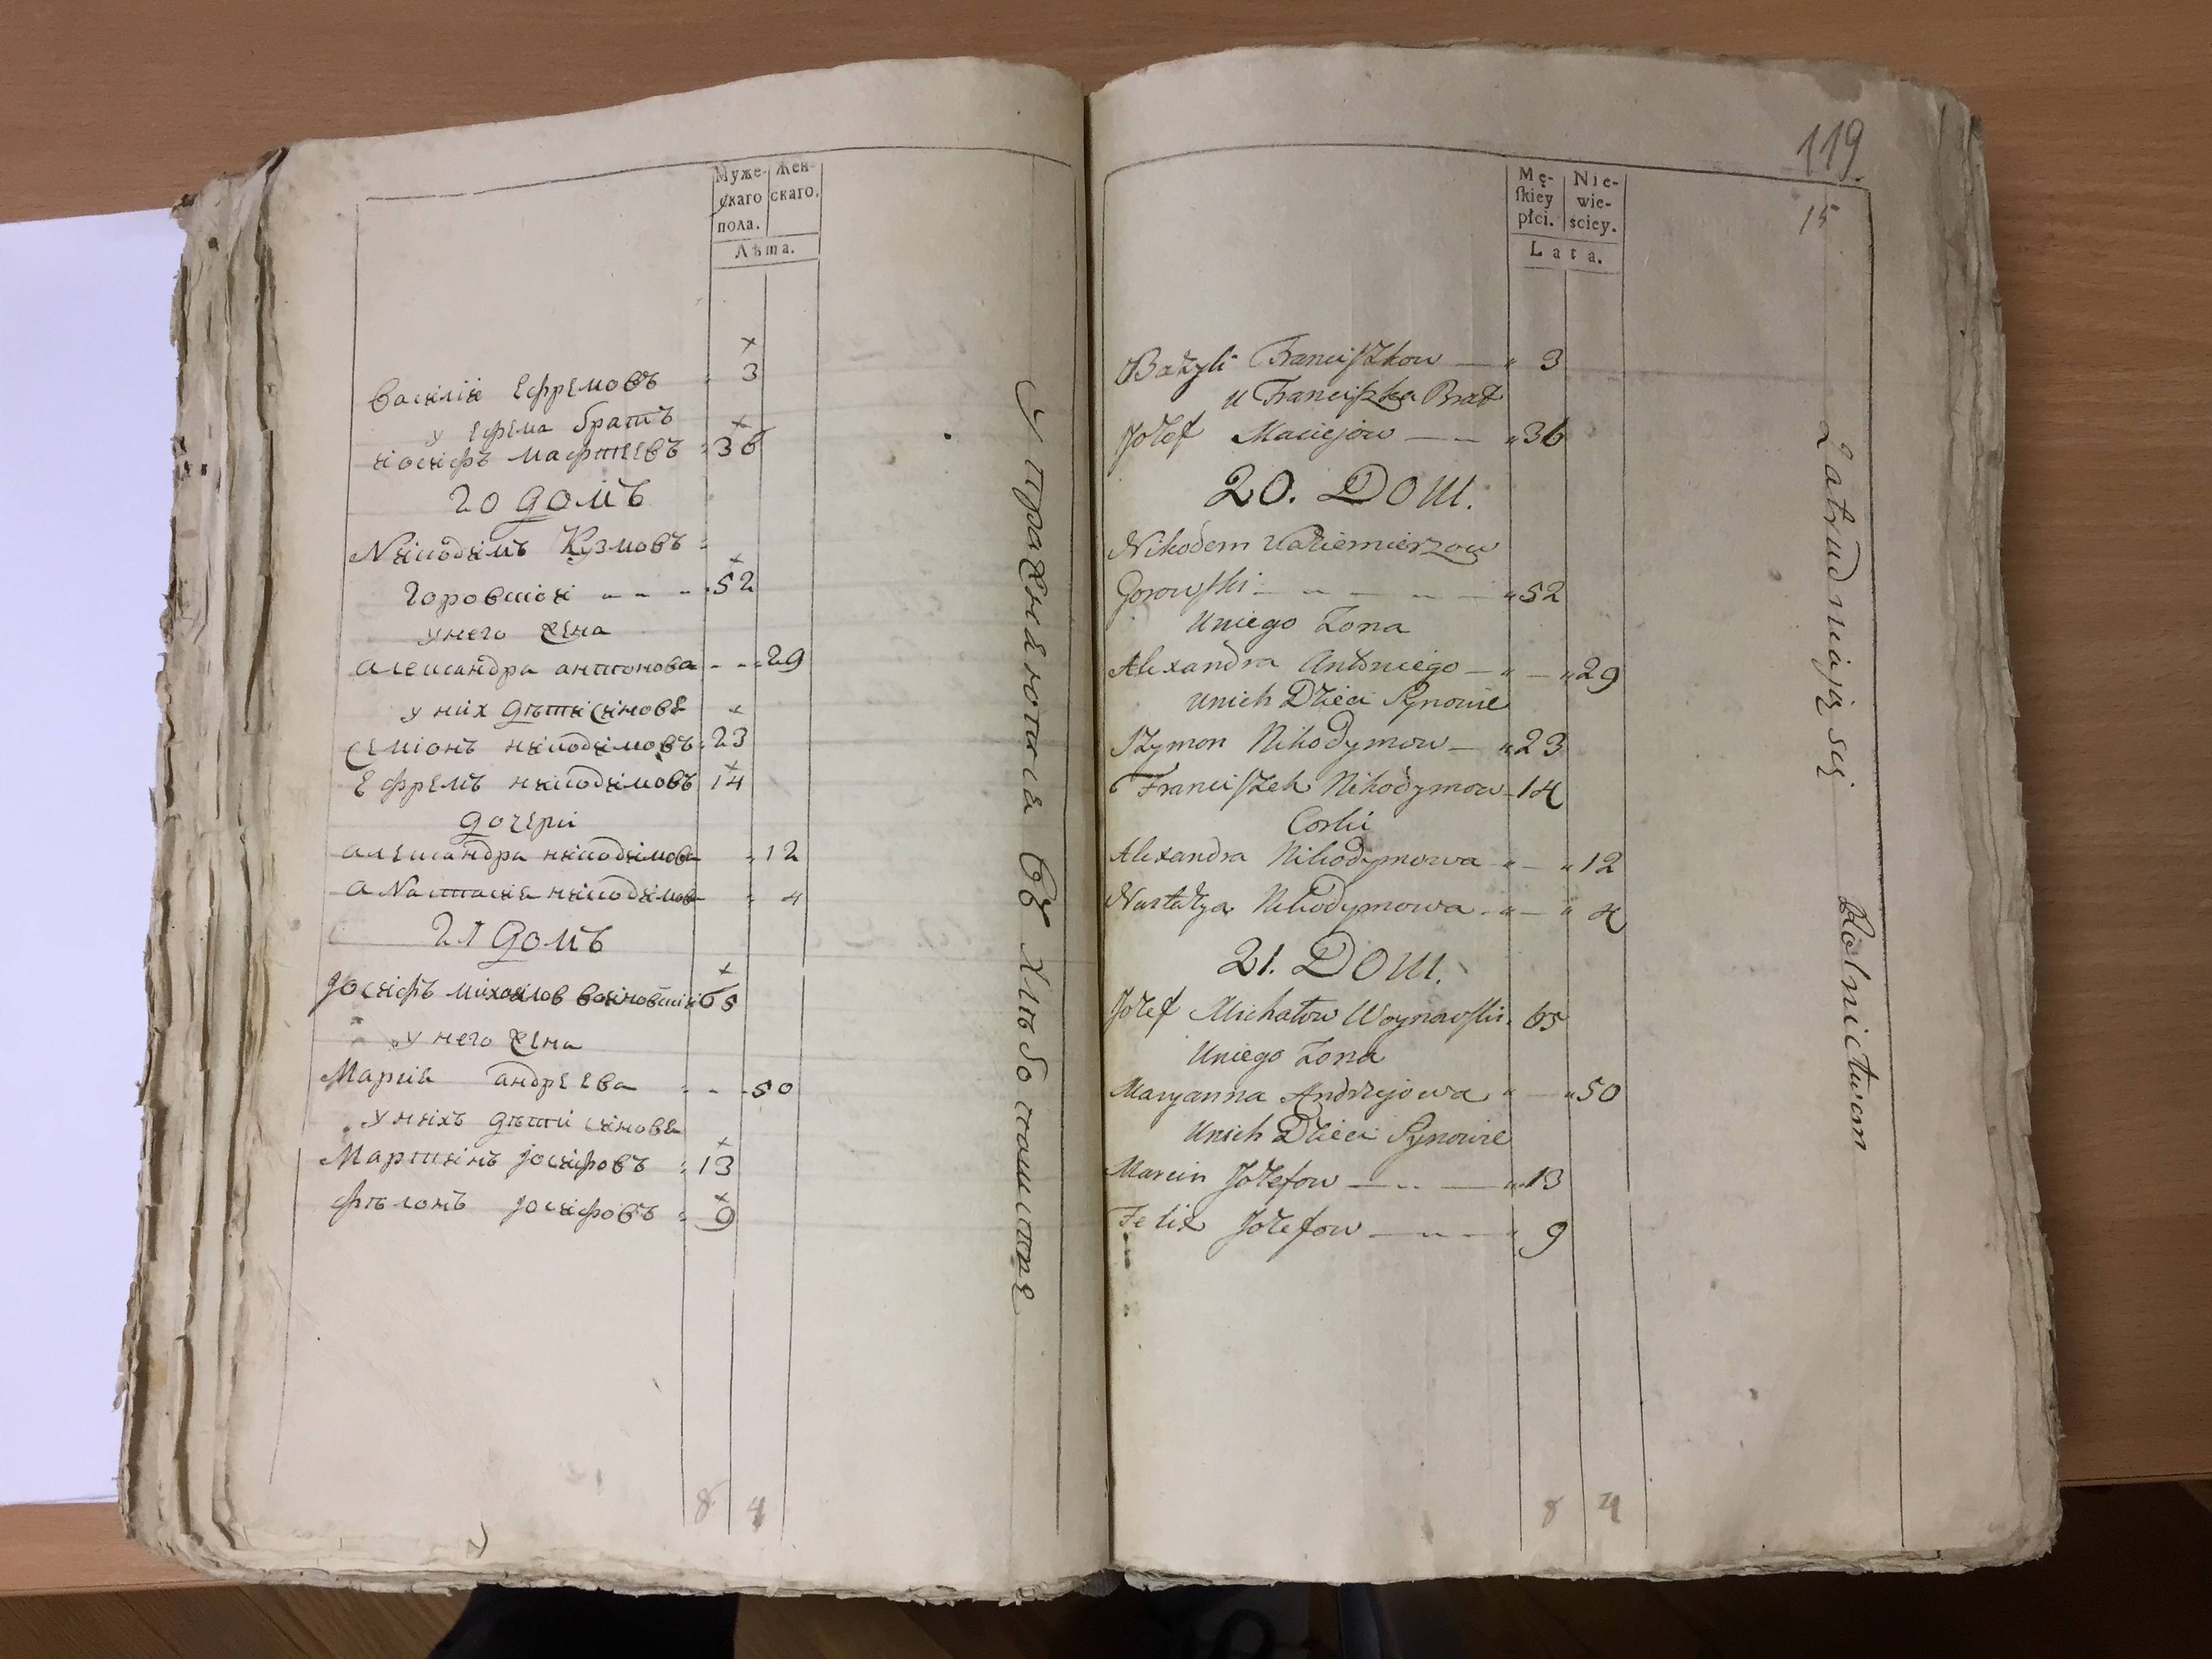 Муже-
скаго
пола.
Жен-
скаго.
Лѣта.
×
Василій Ефремовъ 3
у Ефрема братъ
×
Іосифъ Мафтеевъ 36
20 домъ
Никодимъ Кузмовъ
×
Горовский 52
у него жена
Александра Антонова 29
у них дѣти синове
×
Симіонъ Никодимовъ 23
×
Ефремъ Никодимовъ 14
дочери
Александра Никодимова 12
Анастасия Никодимова 4
21 домъ
×
Іосифъ Михайлов Войновский 65
у него жена
Мария Андреева 50
у нихъ дѣти синове
×
Мартинъ Іосифовъ 13
×
Фѣлонъ Іосифовъ 9
8 4
Упражняются въ хлѣбопашстве
119.
15
Mę-
skiey
płci.
Nie-
wie-
ściey.
Lata.
Bazyli Franciszkow 3
u Franciszka Brat
Jozef Maciejow 36
20. Dom.
Nikodem Kaziemierzow
Gorowski 52
Uniego Zona
Alexandra Antoniego 29
Unich Dzieci Synowie
Szymon Nikodymow 23
Franciszek Nikodymow 14
Corki
Alexandra Nikodymowa 12
Nastazya Nikodymowa 4
21. Dom.
Jozef Michałow Woynowski 65
Uniego Zona
Maryanna Andrzejowa 50
Unich Dzieci Synowie
Marcin Jozefow 13
Felix Jozefow 9
8 4
Zatrudniają się Rolnictwem